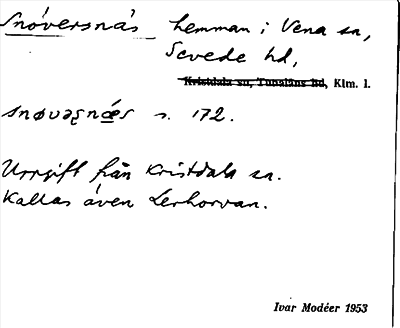 Snöversnäs hemman i Vena sn,
Sevede hd,
Kristdala sn, Tunaläns hd, Klm. l.
snøvəʂnæs s. 172.
Uppgift från Kristdala sn.
Kallas även Lerhorvan.
Ivar Modéer 1953